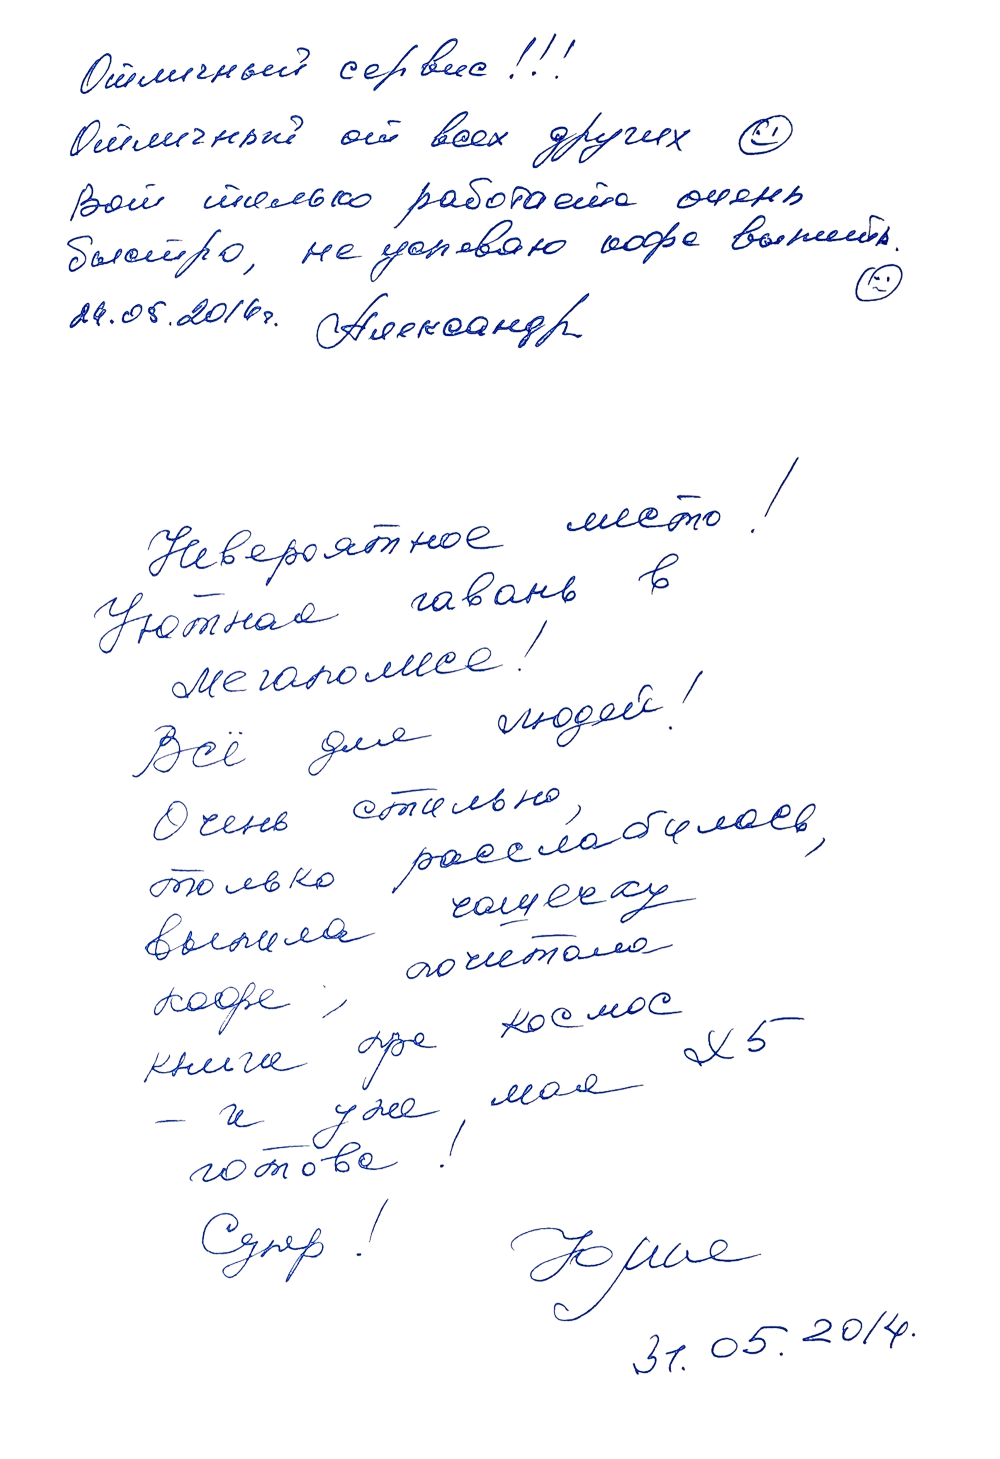 Отличный сервис!!!
Отличный от всех других
Вот только работаете очень
быстро, не успеваю кофе выпить.
29.05.2014г. Александр
Невероятное место!
Уютная гавань в
мегаполисе!
Всё для людей!
Очень стильно,
только расслабилась,
выпила чашечку
кофе, почитала
книги про космос
- и уже моя X5
готова!
Супер!
Юлия
31.05.2014.